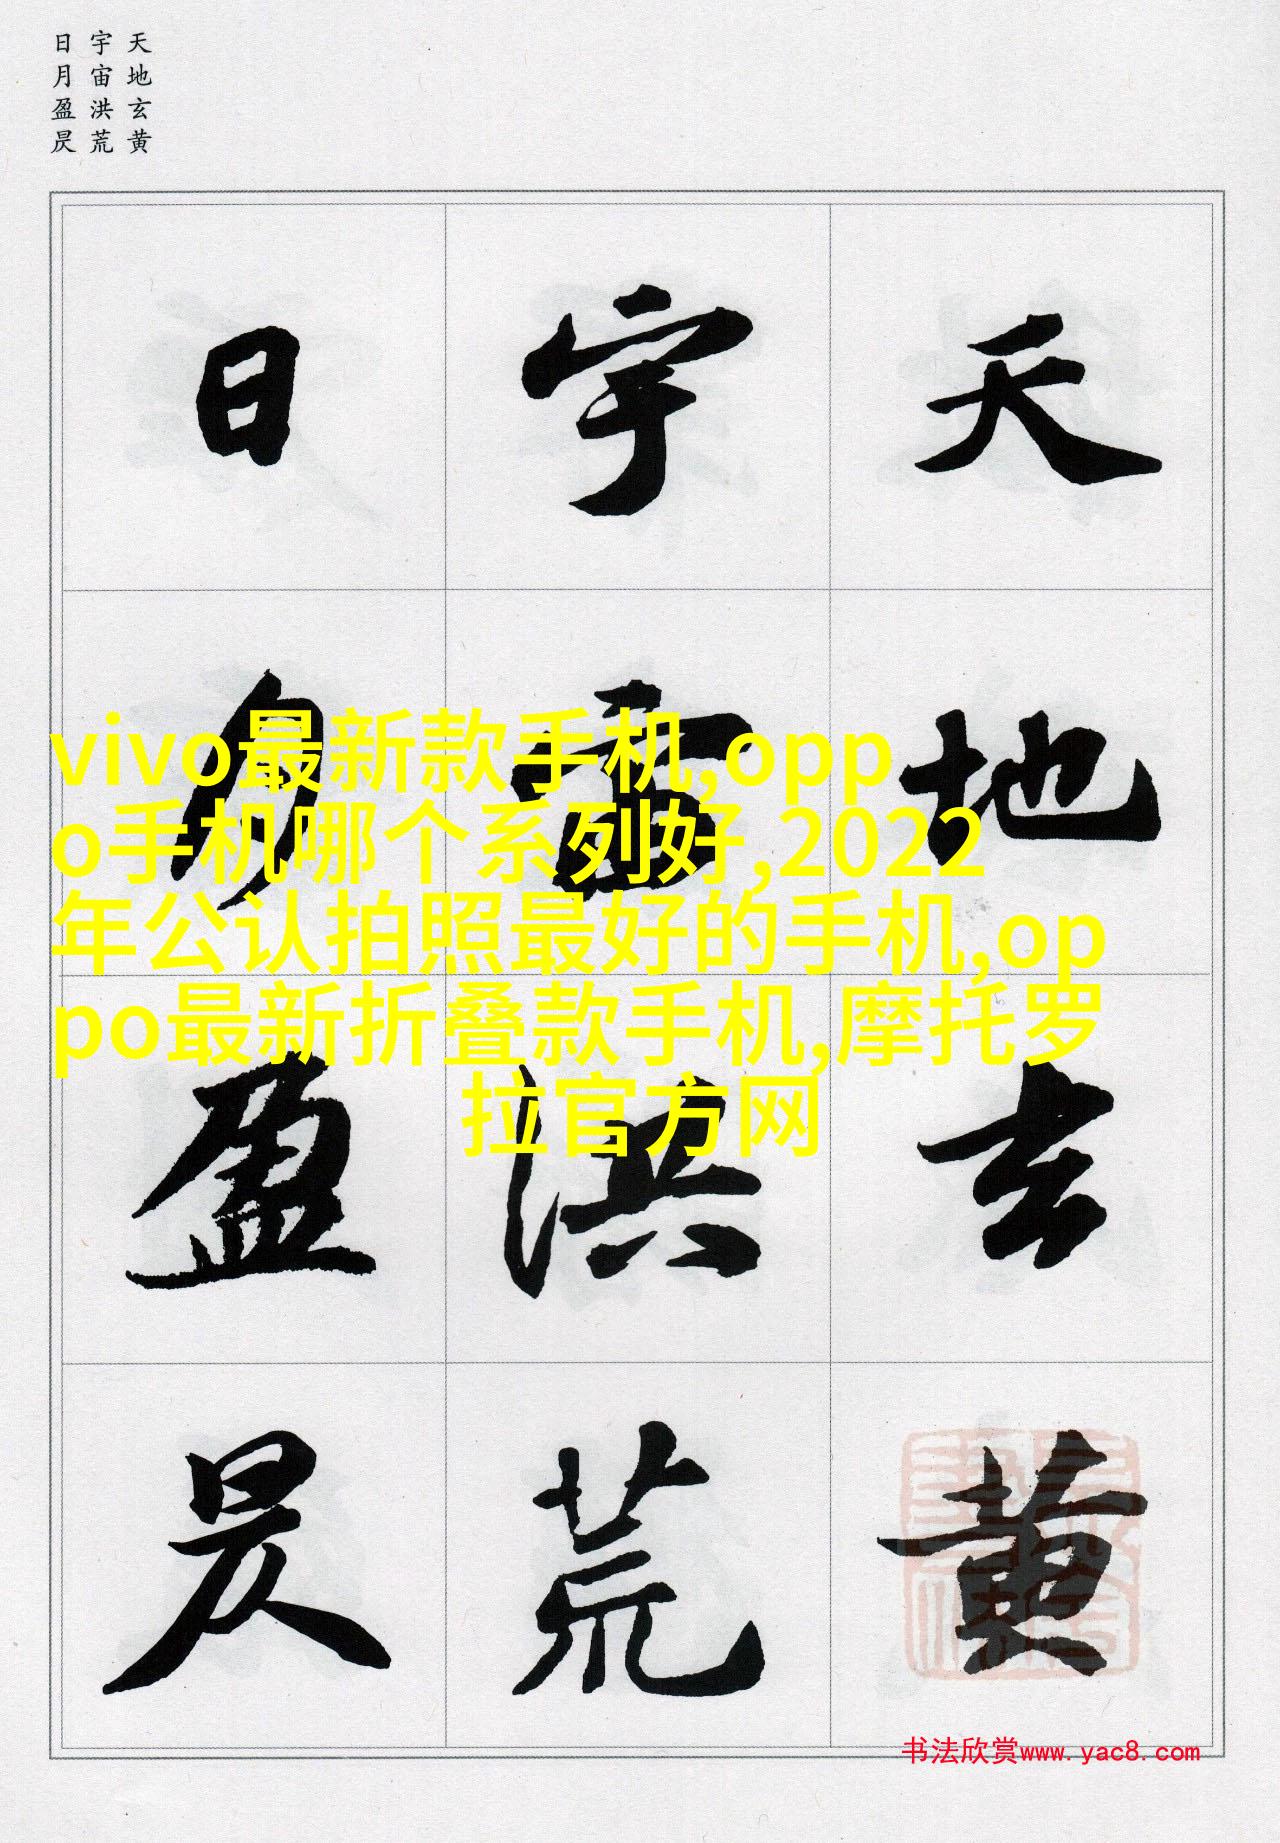 天地玄黄
宇宙洪荒
日月盈昃
天地玄黄
宇宙洪荒
日月盈昃
vivo最新款手机,opp
o手机哪个系列好,2022
年公认拍照最好的手机,op
po最新折叠款手机,摩托罗
拉官方网
书法欣赏www.yac8.com